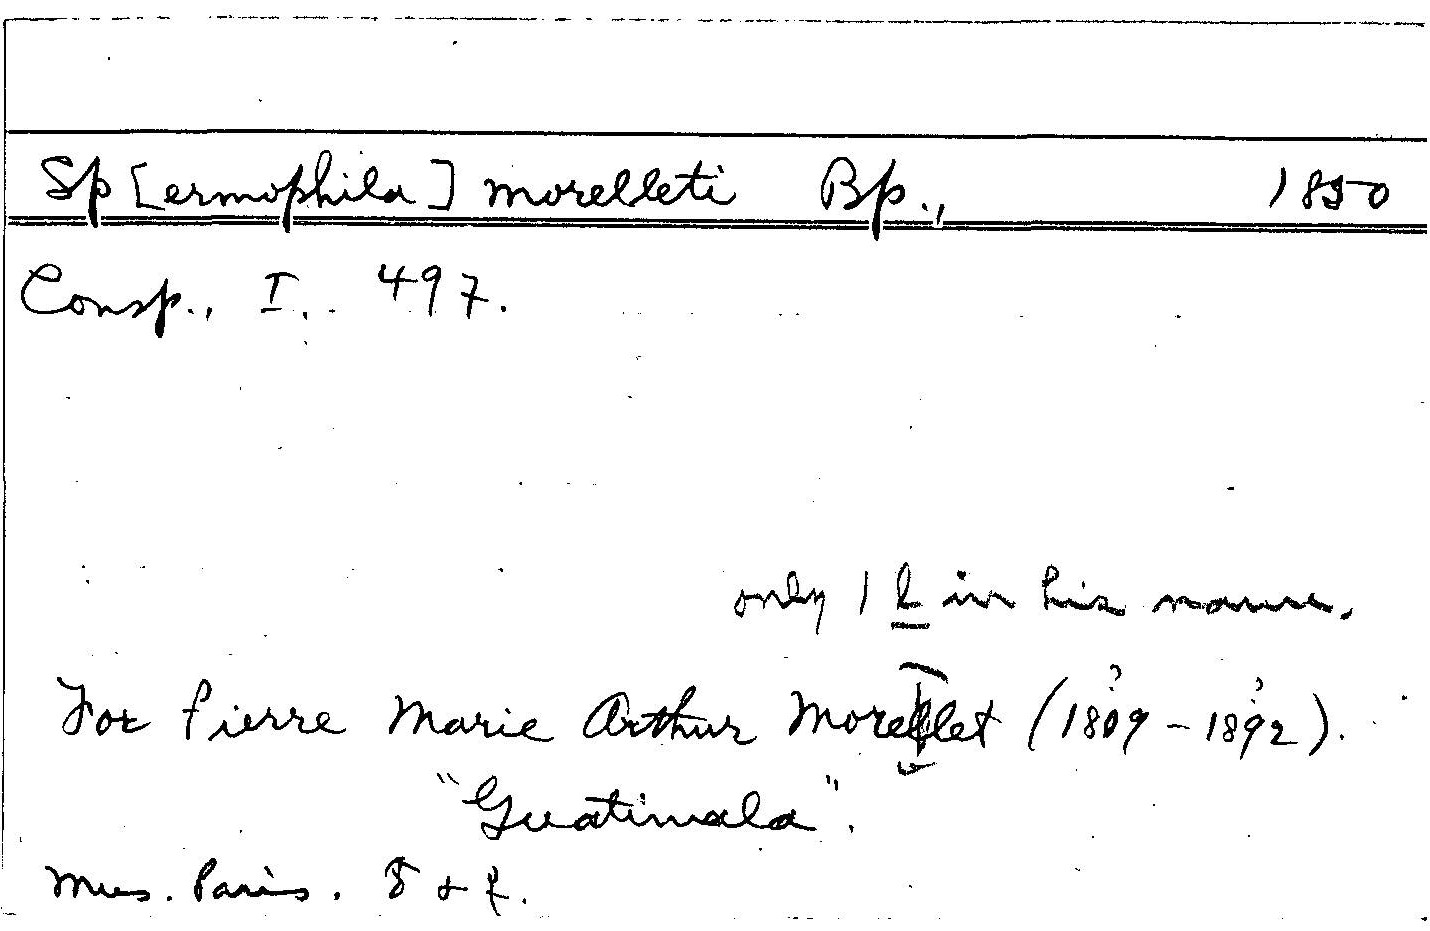 Sp[ermophila] morelleti Bp., 1850
Consp., I. 497.
only 1 l in his name.
For Pierre Marie Arthur Morellet (1809? - 1892?).
"Guatimala".
Mus. Paris. ♂ & ♀.